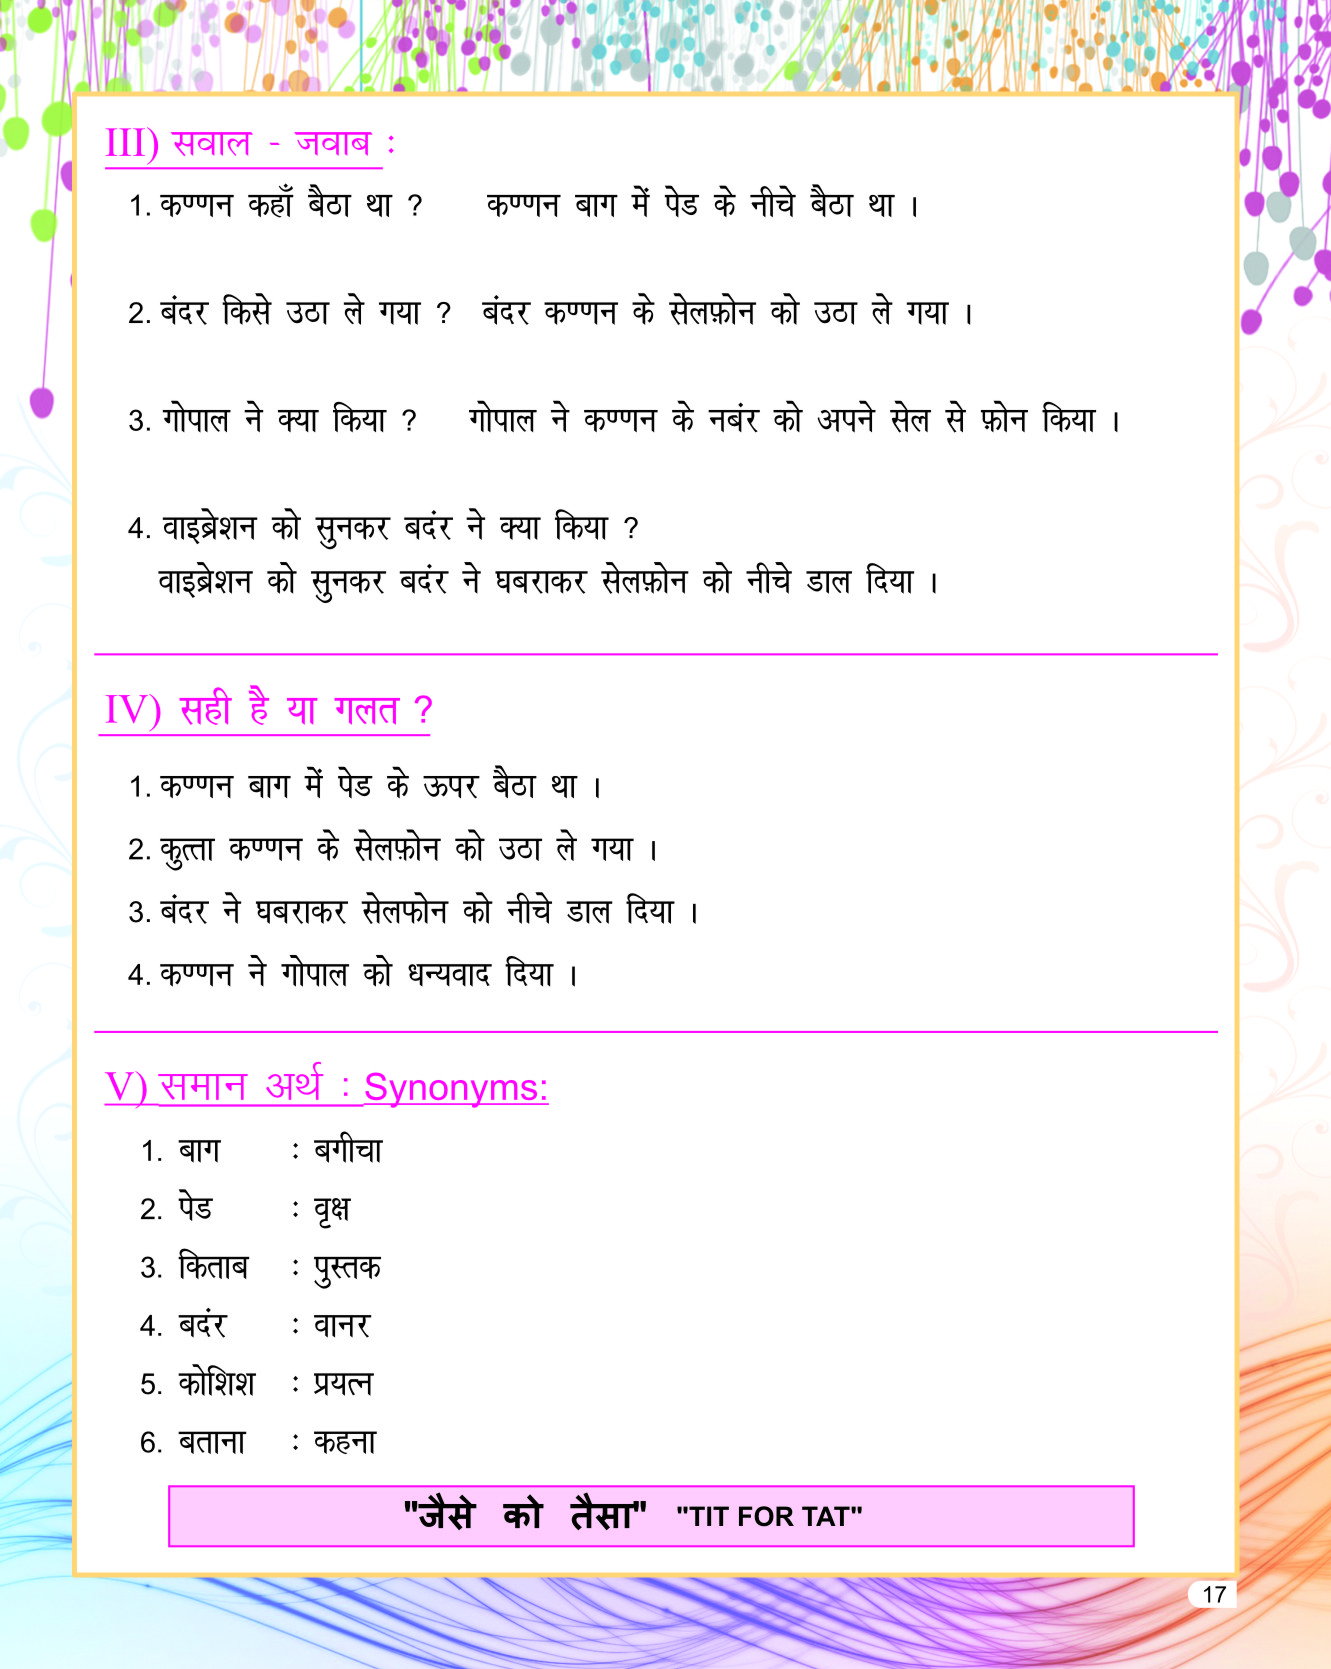 III) सवाल - जवाब :
1. कण्णन कहाँ बैठा था ? कण्णन बाग में पेड के नीचे बैठा था ।
2. बंदर किसे उठा ले गया ? बंदर कण्णन के सेलफ़ोन को उठा ले गया ।
3. गोपाल ने क्या किया ? गोपाल ने कण्णन के नबंर को अपने सेल से फ़ोन किया ।
4. वाइब्रेशन को सुनकर बदंर ने क्या किया ?
वाइब्रेशन को सुनकर बदंर ने घबराकर सेलफ़ोन को नीचे डाल दिया ।
IV) सही है या गलत ?
1. कण्णन बाग में पेड के ऊपर बैठा था ।
2. कुत्ता कण्णन के सेलफ़ोन को उठा ले गया ।
3. बंदर ने घबराकर सेलफोन को नीचे डाल दिया ।
4. कण्णन ने गोपाल को धन्यवाद दिया ।
V) समान अर्थ : Synonyms:
1. बाग : बगीचा
2. पेड : वृक्ष
3. किताब : पुस्तक
4. बदंर : वानर
5. कोशिश : प्रयत्न
6. बताना : कहना
"जैसे को तैसा" "TIT FOR TAT"
17